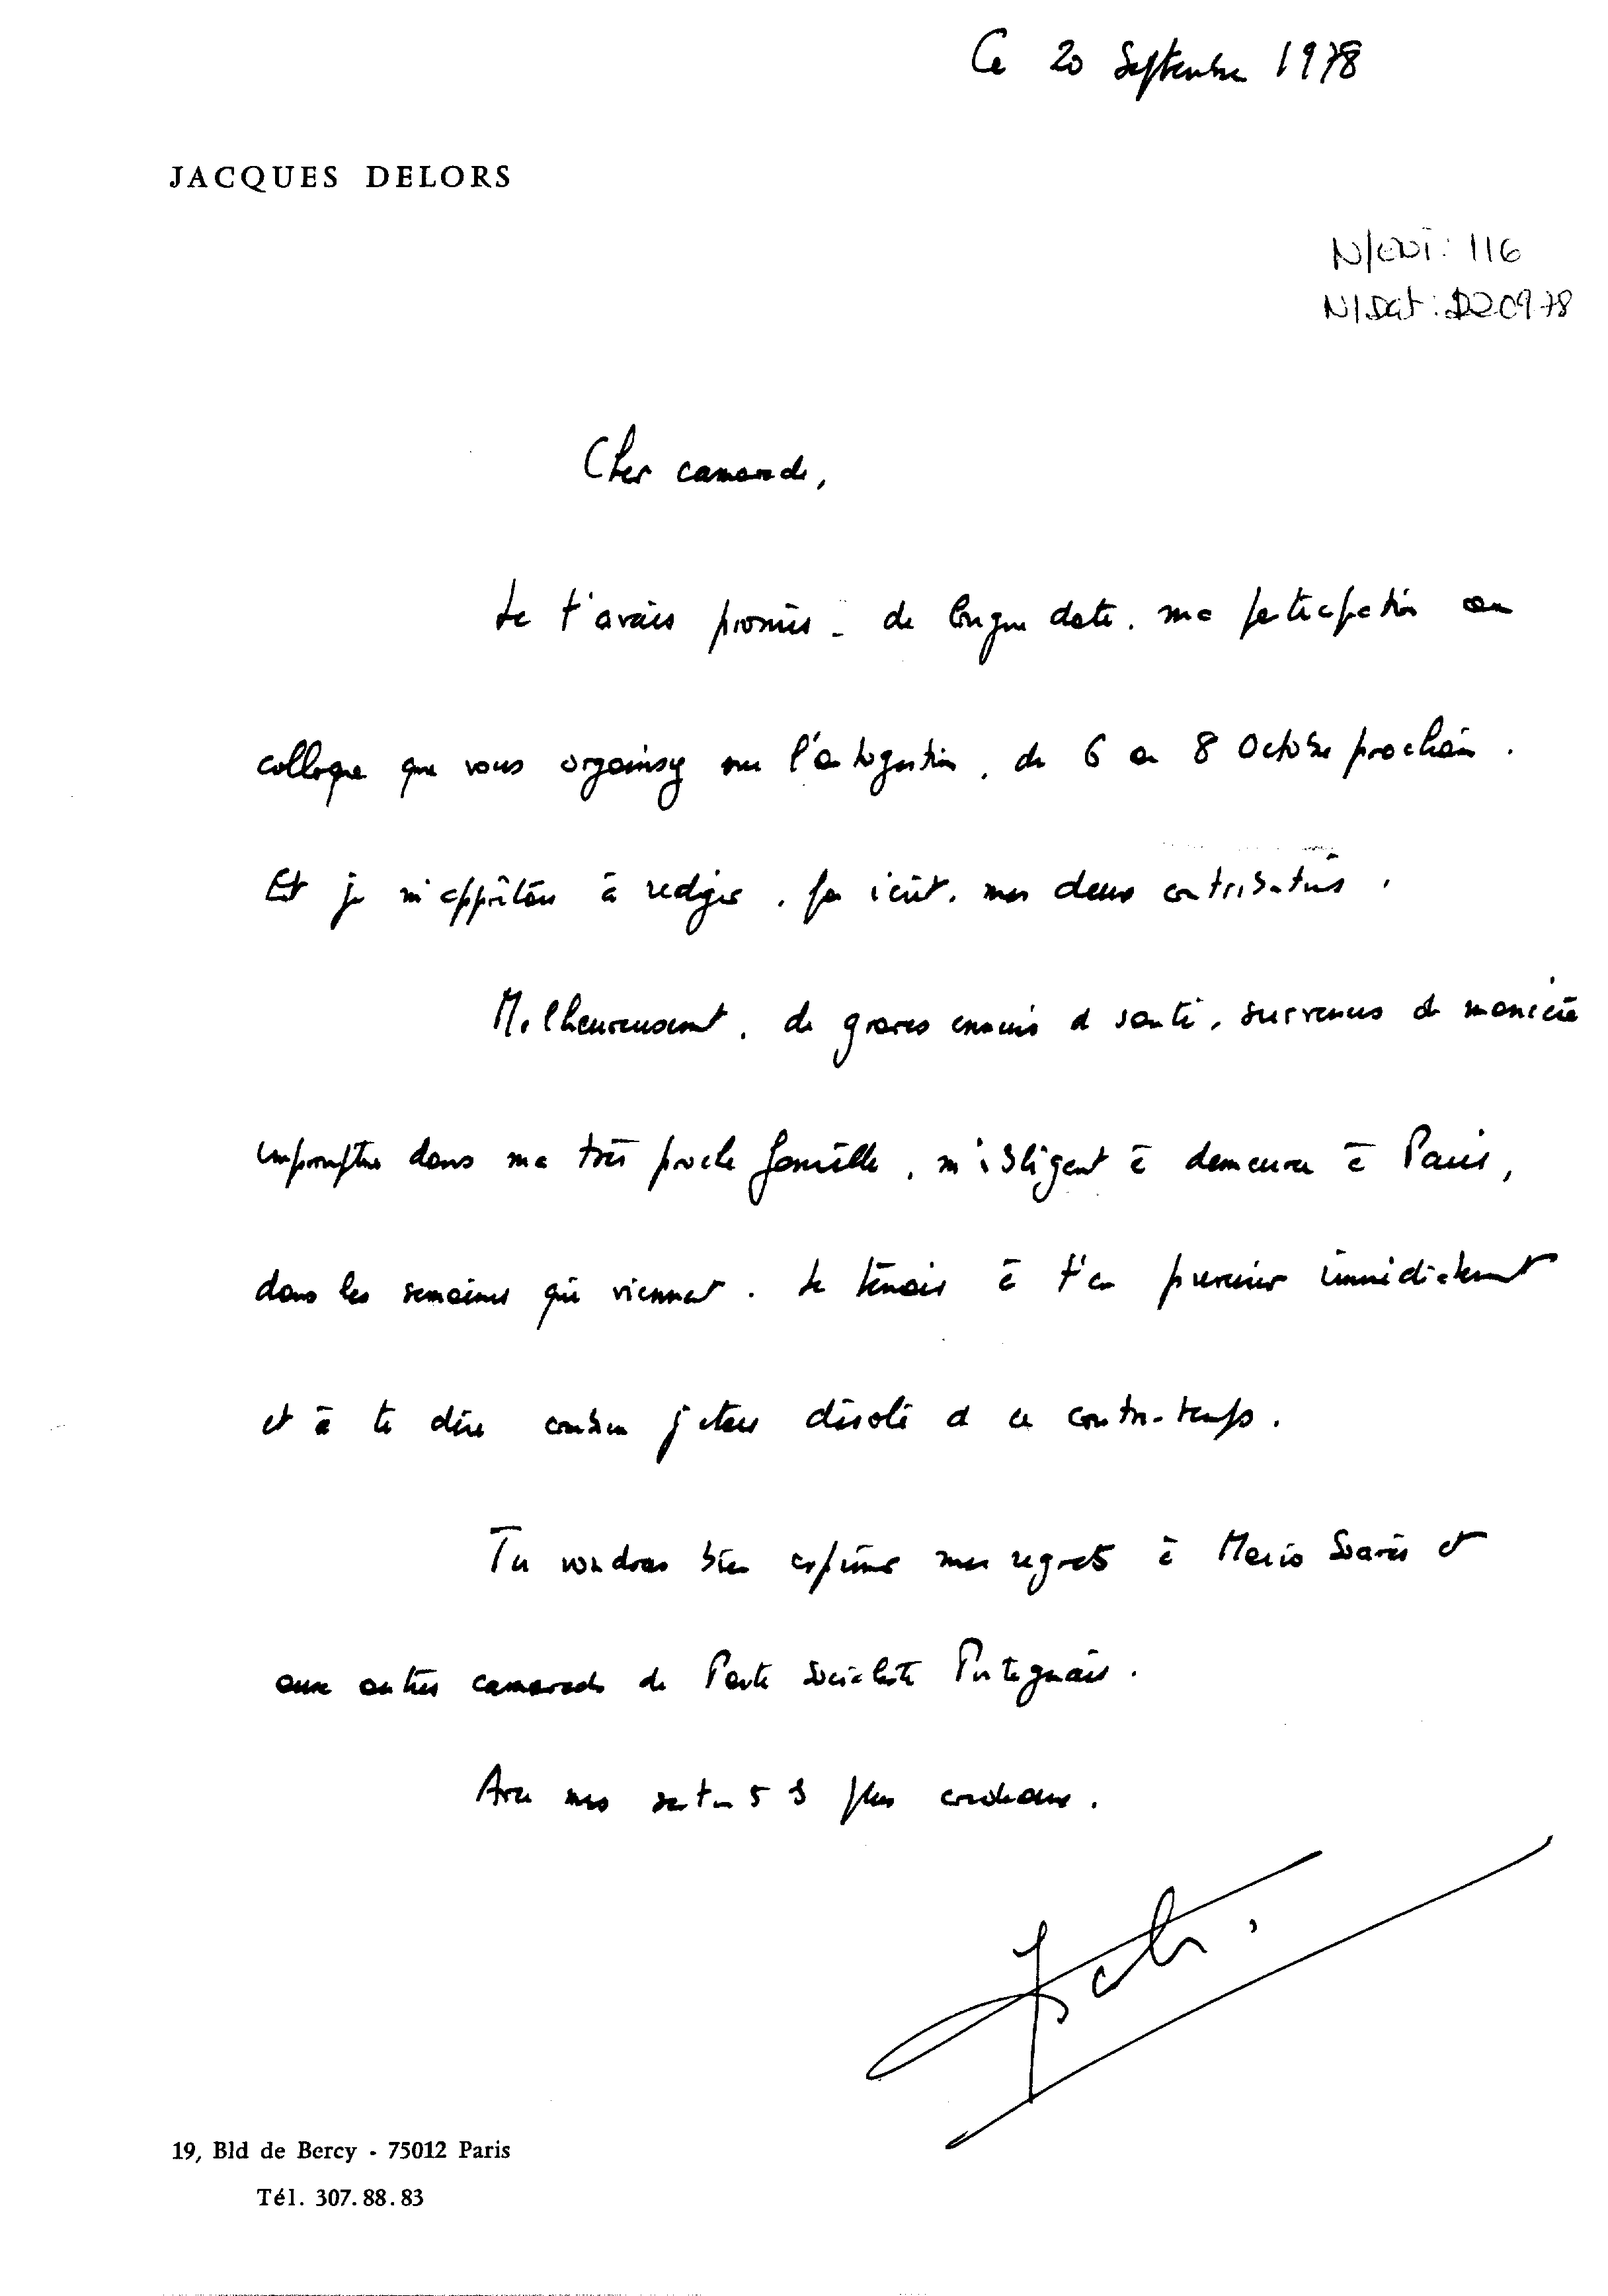 Ce 20 Septembre 1978
JACQUES DELORS
N/ENT: 116
N/Dat: D200978
Cher camarade,
Je t'avais promis - de longue date - ma participation au
colloque que vous organisez sur l'autogestion, du 6 au 8 Octobre prochain.
Et je m'apprêtais à rédiger, par écrit, mes deux contributions.
Malheureusement, de graves ennuis de santé, survenus de manière
impromptue dans ma très proche famille, m'obligent à demeurer à Paris,
dans les semaines qui viennent. Je tenais à t'en prévenir immédiatement
et à te dire combien j'étais désolé de ce contre-temps.
Tu voudras bien exprimer mes regrets à Mario Soares et
aux autres camarades du Parti Socialiste Portugais.
Avec mes sentiments les plus cordiaux.
19, Bld de Bercy - 75012 Paris
Tél. 307.88.83